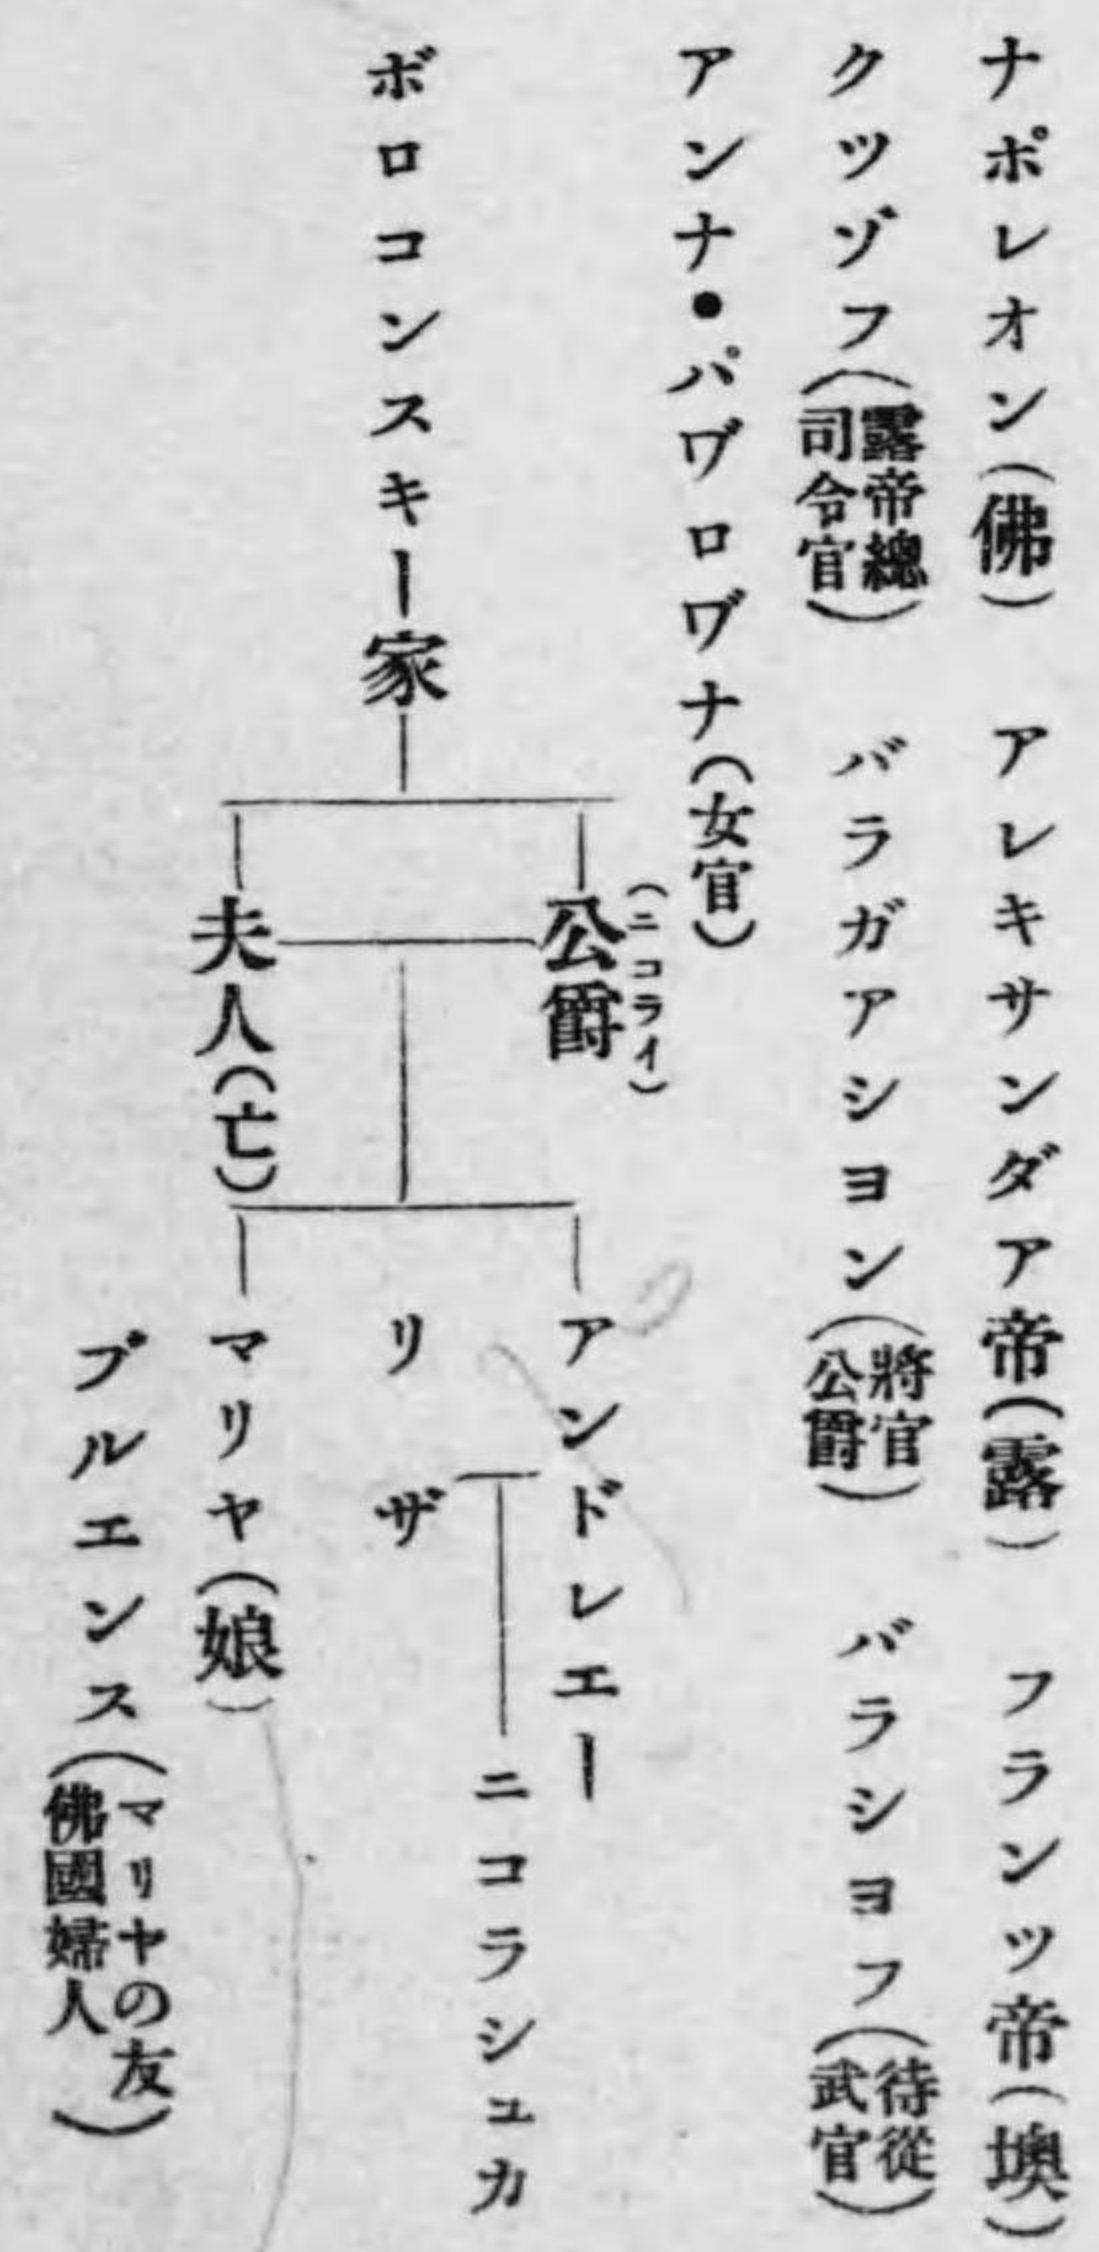 ナポレオン(佛)　アレキサンダア帝(露)　フランツ帝(墺)
クツゾフ(露帝總司令官)　バラガアシヨン(將官公爵)　バラシヨフ(待從武官)
アンナ・パヴロヴナ(女官)
ボロコンスキー家
公爵(ニコライ)
夫人(亡)
アンドレエー
リザ
ニコラシュカ
マリヤ(娘)
ブルエンス(マリヤの友佛國婦人)